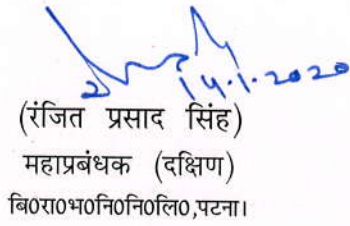 14.1.2020
(रंजित प्रसाद सिंह)
महाप्रबंधक (दक्षिण)
बि0रा0भ0नि0नि0लि0,पटना।